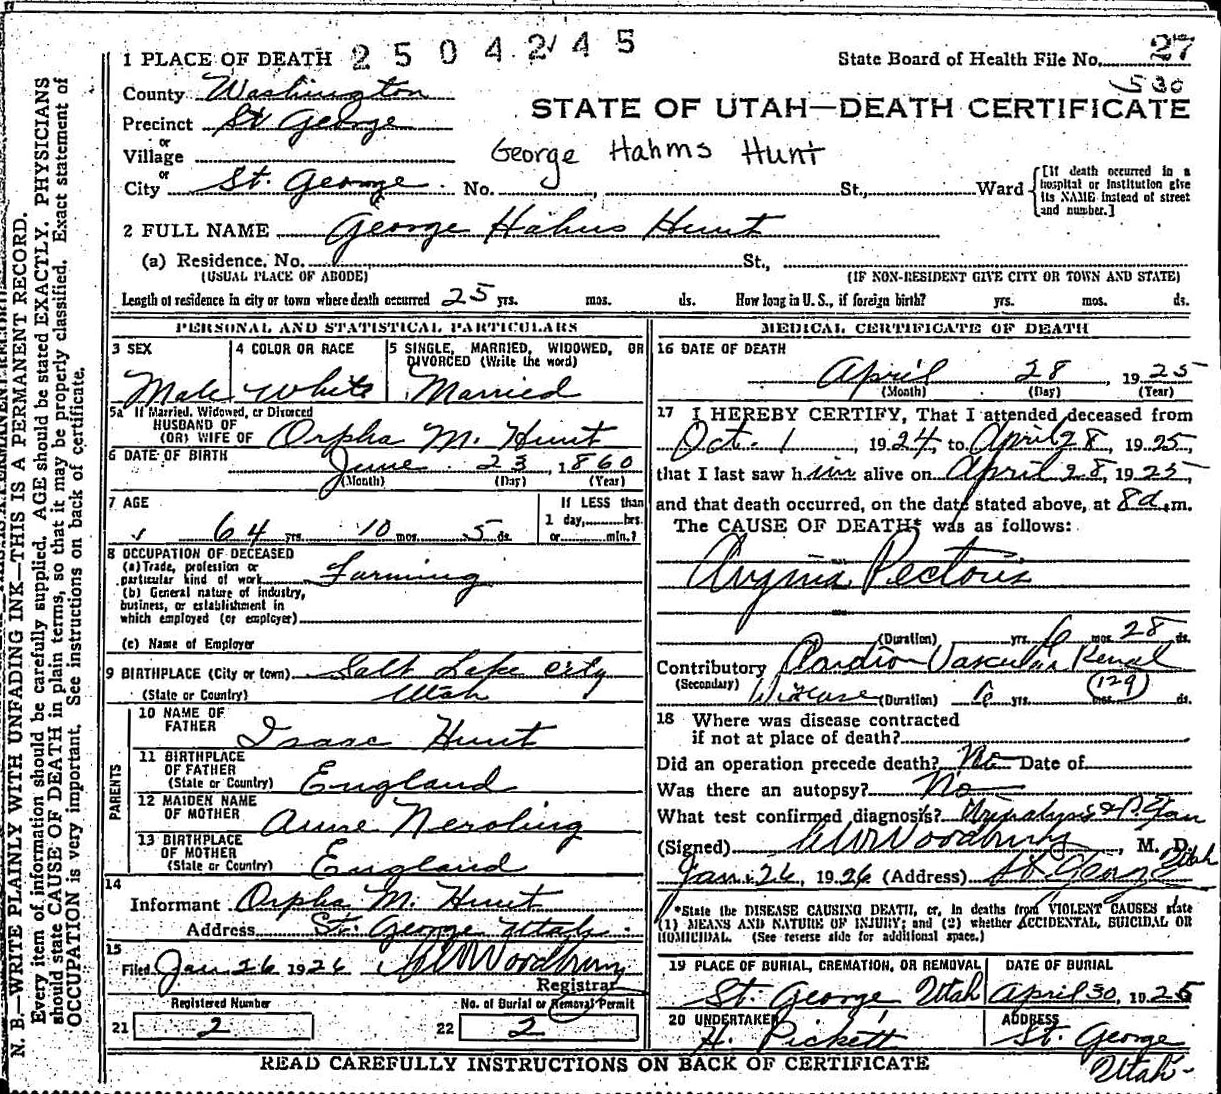 1 PLACE OF DEATH 2504245 State Board of Health File No. 27
530
County Washington
STATE OF UTAH—DEATH CERTIFICATE
Precinct St George
or
Village
George Hahms Hunt
or
City St. George. No. St., Ward [If death occurred in a hospital or institution give its NAME instead of street and number.]
2 FULL NAME George Hahns Hunt
(a) Residence, No. St.,
(USUAL PLACE OF ABODE) (IF NON-RESIDENT GIVE CITY OR TOWN AND STATE)
Length of residence in city or town where death occurred 25 yrs. mos. ds. How long in U. S., if foreign birth? yrs. mos. ds.
PERSONAL AND STATISTICAL PARTICULARS
3 SEX 4 COLOR OR RACE 5 SINGLE, MARRIED, WIDOWED, OR
DIVORCED (Write the word)
Male White Married
5a If Married, Widowed, or Divorced
HUSBAND OF
(OR) WIFE OF Orpha M. Hunt
6 DATE OF BIRTH June 23 1860
(Month) (Day) (Year)
7 AGE If LESS than
64 yrs 10 mos. 5 ds. 1 day, hrs.
or min.?
8 OCCUPATION OF DECEASED
(a) Trade, profession or
particular kind of work Farming
(b) General nature of industry,
business, or establishment in
which employed (or employer)
(c) Name of Employer
9 BIRTHPLACE (City or town) Salt Lake City
(State or Country) Utah
PARENTS
10 NAME OF
FATHER Isaac Hunt
11 BIRTHPLACE
OF FATHER
(State or Country) England
12 MAIDEN NAME
OF MOTHER Anne
13 BIRTHPLACE
OF MOTHER
(State or Country) England
14
Informant Orpha M. Hunt
Address St. George Utah.
15
Filed Jan 26 1926 Woodbury
Registrar
Registered Number No. of Burial or Removal Permit
21 2 22 2
MEDICAL CERTIFICATE OF DEATH
16 DATE OF DEATH
April 28, 1925
(Month) (Day) (Year)
17 I HEREBY CERTIFY, That I attended deceased from
Oct. 1, 1924, to April 28, 1925,
that I last saw him alive on April 28, 1925
and that death occurred, on the date stated above, at 8 a.m.
The CAUSE OF DEATH* was as follows:
Angina Pectoris
(Duration) yrs. 6 mos. 28 ds.
Contributory Cardio Vascular Renal
(Secondary) Disease (Duration) 6 yrs. mos. (129) ds.
18 Where was disease contracted
if not at place of death?
Did an operation precede death? No Date of
Was there an autopsy? No
What test confirmed diagnosis? Urinalysis &
(Signed) Woodbury, M. D.
Jan. 26, 1926 (Address) St. George Utah
*State the DISEASE CAUSING DEATH, or, in deaths from VIOLENT CAUSES state
(1) MEANS AND NATURE OF INJURY; and (2) whether ACCIDENTAL, SUICIDAL OR
HOMICIDAL. (See reverse side for additional space.)
19 PLACE OF BURIAL, CREMATION, OR REMOVAL DATE OF BURIAL
St. George, Utah April 30, 1925
20 UNDERTAKER ADDRESS
H. Pickett St. George
Utah-
READ CAREFULLY INSTRUCTIONS ON BACK OF CERTIFICATE
N. B.—WRITE PLAINLY WITH UNFADING INK—THIS IS A PERMANENT RECORD.
Every item of information should be carefully supplied. AGE should be stated EXACTLY. PHYSICIANS
should state CAUSE OF DEATH in plain terms, so that it may be properly classified. Exact statement of
OCCUPATION is very important. See instructions on back of certificate.